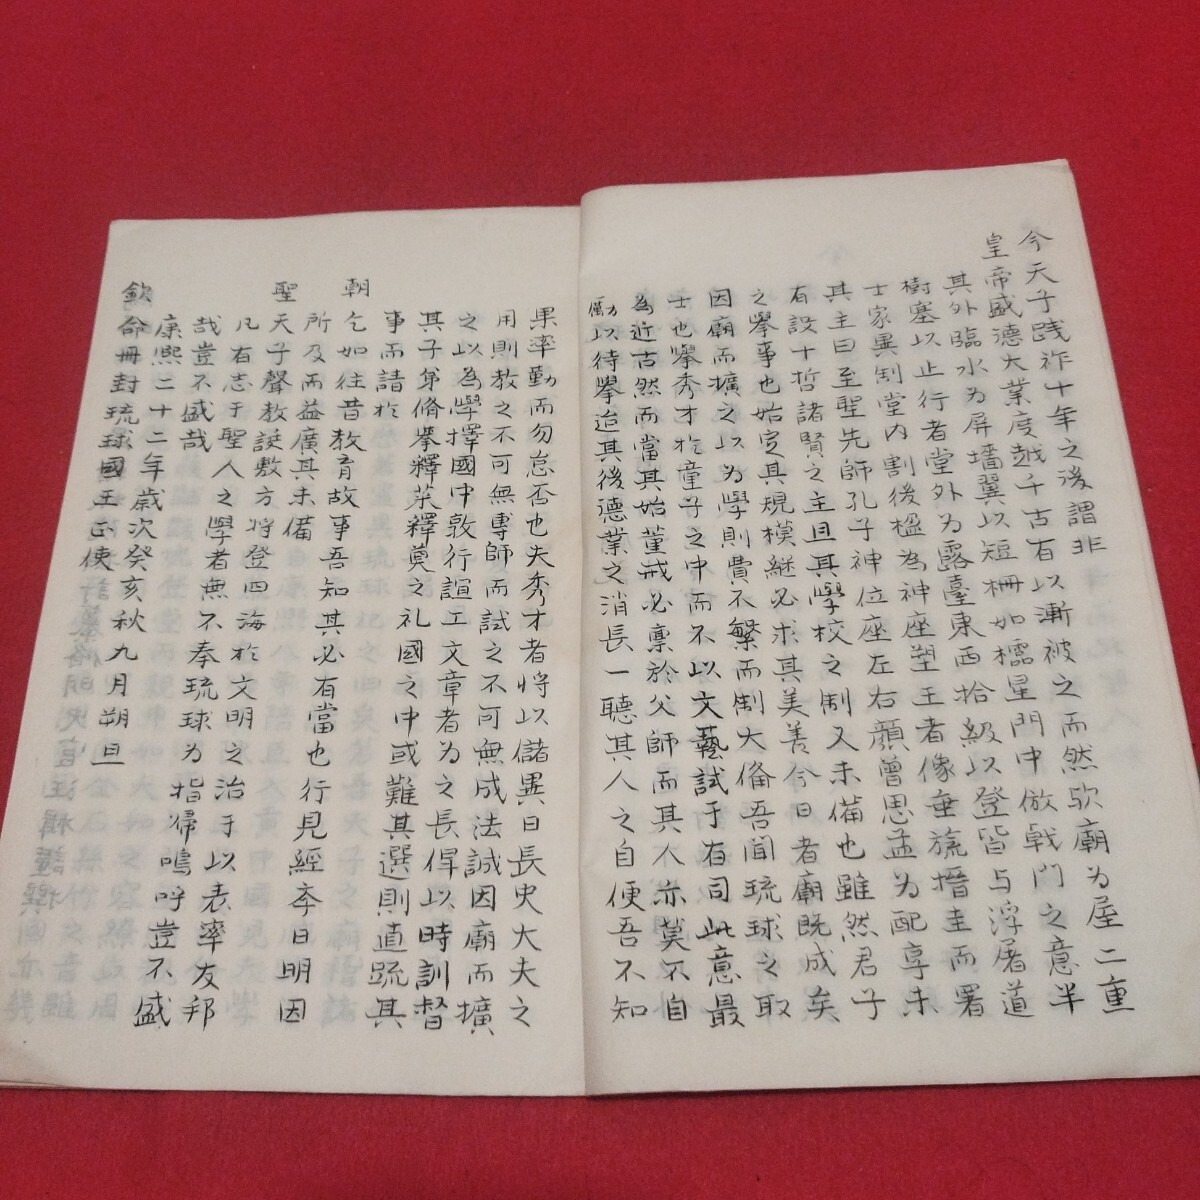 今天子践祚十年之後謂非
皇帝盛德大業度越千古有以漸被之而然欤廟為屋二重
其外臨水為屏墻翼以短柵如櫺星門中倣戟門之意半
樹塞以止行者堂外為露臺東西拾級以登皆与浮屠道
士家異制堂内割後楹為神座塑王者像垂旒搢圭而署
其主曰至聖先師孔子神位座左右顔曽思孟為配享未
有設十哲諸賢之主且其學校之制又未備也雖然君子
之擧事也始定其規模継必求其美善今日者廟既成矣
因廟而擴之以為學則費不繁而制大俻吾聞琉球之取
士也擧秀才於童子之中而不以文藝試于有司此意最
為近古然而當其始菫戒必禀於父師而其人亦莫不自
勵以待擧迨其後德業之消長一聽其人之自便吾不知
果率勤而勿怠否也夫秀才者將以儲異日長史大夫之
用則教之不可無專師而試之不可無成法誠因廟而擴
之以為學擇國中敦行誼工文章者為之長俾以時訓督
其子弟脩擧釋菜釋奠之礼國之中或難其選則直疏其
事而請於
朝
乞如往昔教育故事吾知其必有當也行見經夲日明因
所及而益廣其未備
聖
天子聲教誕敷方將登四海於文明之治于以表率友邦
凡有志于聖人之學者無不奉琉球为指帰嗚呼豈不盛
哉豈不盛哉
康熙二十二年歳次癸亥秋九月朔旦
欽
命冊封琉球國王正使